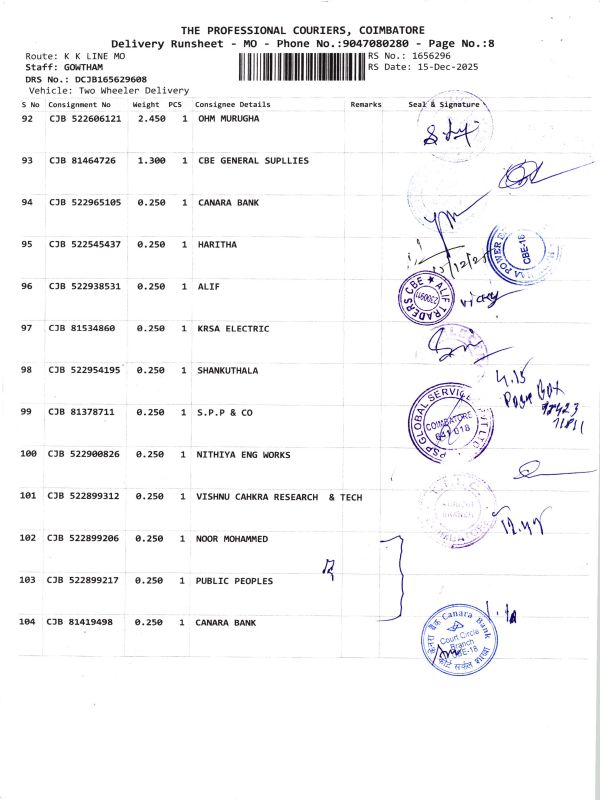 THE PROFESSIONAL COURIERS, COIMBATORE
Delivery Runsheet - MO - Phone No.:9047080280 - Page No.:8
Route: K K LINE MO
RS No.: 1656296
Staff: GOWTHAM
RS Date: 15-Dec-2025
DRS No.: DCJB165629608
Vehicle: Two Wheeler Delivery
S No Consignment No Weight PCS Consignee Details Remarks Seal & Signature
92 CJB 522606121 2.450 1 OHM MURUGHA
93 CJB 81464726 1.300 1 CBE GENERAL SUPLLIES
94 CJB 522965105 0.250 1 CANARA BANK
95 CJB 522545437 0.250 1 HARITHA
CBE-18
15/12/25
96 CJB 522938531 0.250 1 ALIF
ALIF TRADERS CBE
vicky
97 CJB 81534860 0.250 1 KRSA ELECTRIC
98 CJB 522954195 0.250 1 SHANKUTHALA
4.15
99 CJB 81378711 0.250 1 S.P.P & CO
PSP GLOBAL SERVICES PVT LTD
COIMBATORE
641 018
100 CJB 522900826 0.250 1 NITHIYA ENG WORKS
101 CJB 522899312 0.250 1 VISHNU CAHKRA RESEARCH & TECH
12.45
102 CJB 522899206 0.250 1 NOOR MOHAMMED
103 CJB 522899217 0.250 1 PUBLIC PEOPLES
104 CJB 81419498 0.250 1 CANARA BANK
केनरा बैंक Canara Bank
Court Circle
Branch
CBE-18
कोर्ट सर्कल शाखा